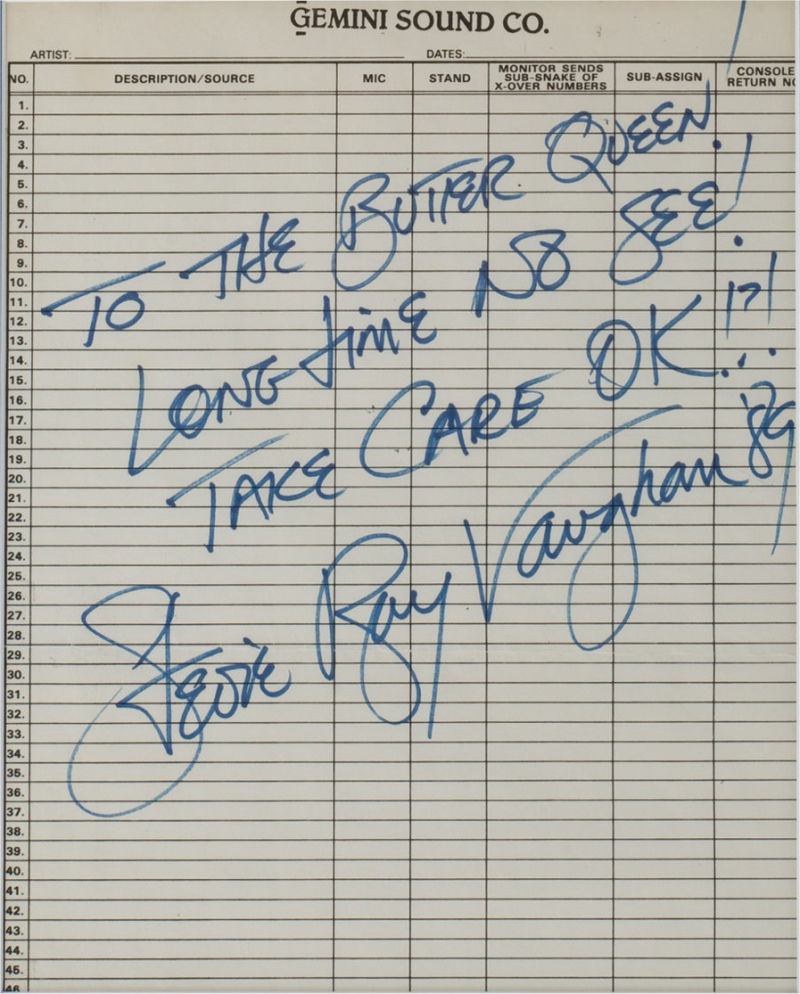 GEMINI SOUND CO.
ARTIST: DATES:
NO. DESCRIPTION/SOURCE MIC STAND MONITOR SENDS SUB-SNAKE OF X-OVER NUMBERS SUB-ASSIGN CONSOLE RETURN NO
1.
2.
3.
4.
5.
6.
7.
8.
9.
10.
11.
12.
13.
14.
15.
16.
17.
18.
19.
20.
21.
22.
23.
24.
25.
26.
27.
28.
29.
30.
31.
32.
33.
34.
35.
36.
37.
38.
39.
40.
41.
42.
43.
44.
45.
46
TO THE BUTTER QUEEN!
LONG time NO SEE!
TAKE CARE OK!?!...
Stevie Ray Vaughan '89